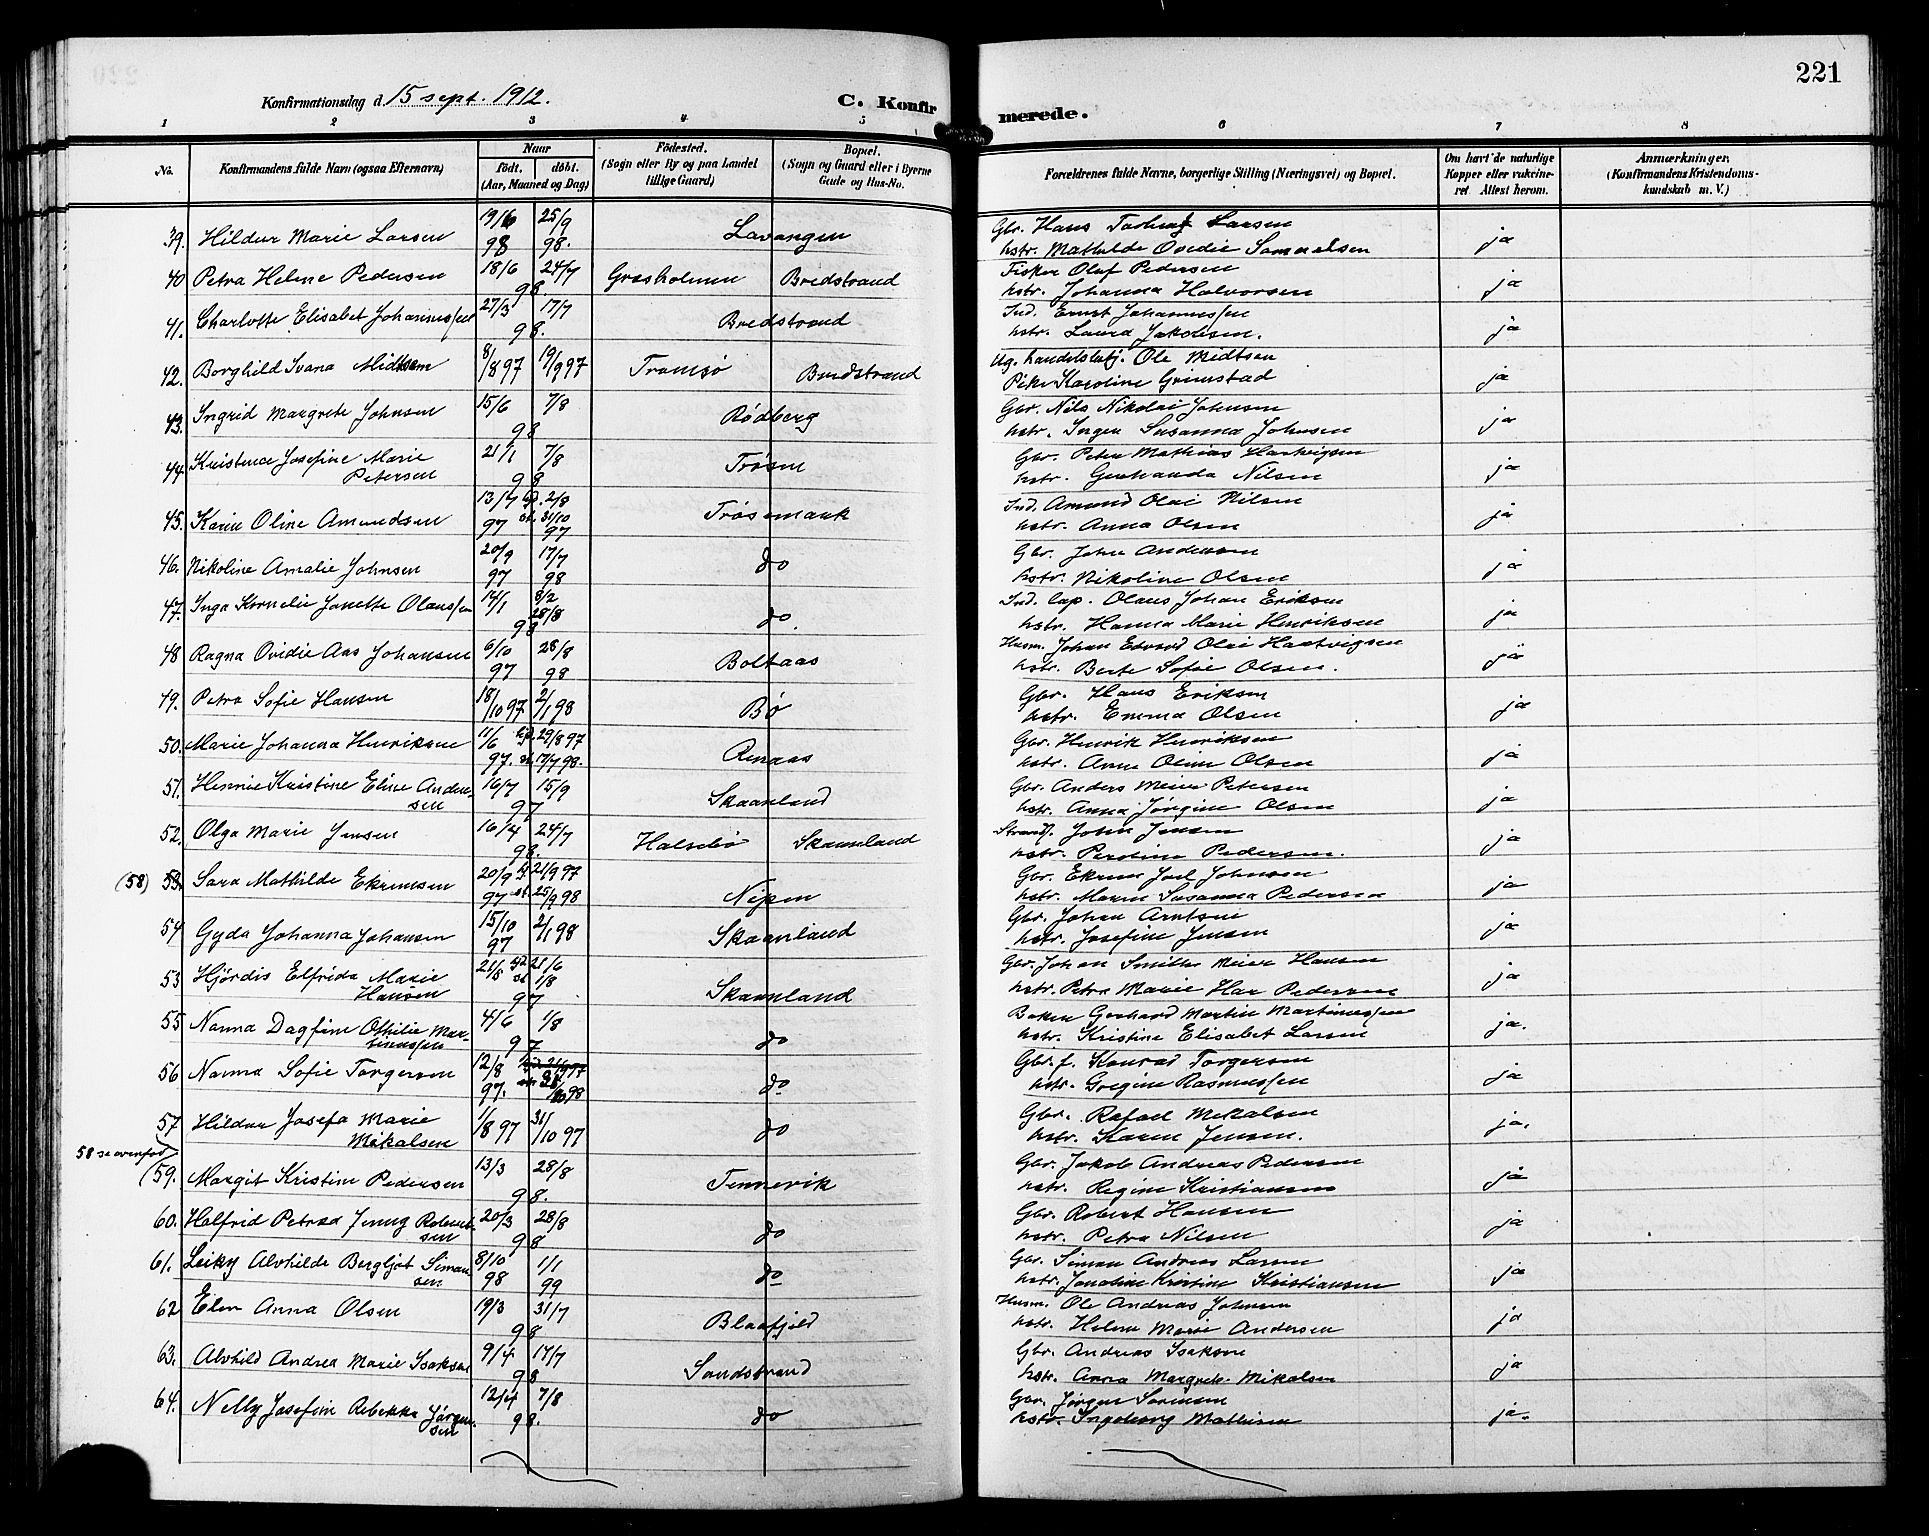 221
Konfirmationsdag d. 15 sept. 1912.
C. Konfirmerede.
1 2 3 4 5 6 7 8
No.
Konfirmandens fulde Navn (ogsaa Efternavn)
Naar
födt. döbt.
(Aar, Maaned og Dag)
Födested.
(Sogn eller By og paa Landet
tillige Gaard)
Bopæl.
(Sogn og Gaard eller i Byerne
Gade og Hus-No.
Forældrenes fulde Navne, borgerlige Stilling (Næringsvei) og Bopæl.
Om havt de naturlige
Kopper eller vukcine-
ret Attest herom.
Anmærkninger.
(Konfirmandens Kristendoms-
kundskab m. V.)
39. Hildur Marie Larsen 19/6 98 25/9 98. Lavangen Gbr. Hans Larsen
hstr. Mathilde Ovedie Samuelsen ja
40 Petra Helene Pedersen 18/6 24/7 98. Græsholmen Bredstrand Fisker Olaf Pedersen
hstr. Johanna Halvorsen ja
41. Charlotte Elisabet Johannessen 27/3 17/7 98. Bredstrand Ind. Ernst Johannessen
hstr. Laura Jakobsen. ja
42. Borghild Ivana Midtsen 8/8 97 19/9 97 Tromsø Bredstrand Ug. handelsbetj. Ole Midtsen
Pike Karoline Grimstad ja
43. Ingrid Margrete Johnsen 15/6 7/8 98 Rødberg Gbr. Nils Nikolai Johnsen
hstr. Inger Susanna Johnsen ja
44. Kristence Josefine Marie
Petersen 21/1 7/8 98 Trøsen Gbr. Peter Mathias Hartvigsen
hstr. Gerharda Nilsen ja
45. Karen Oline Amundsen 13/7 97 hj. 2/8 st. 31/10 97 Trøsemark Ind. Amund Olai Nilsen
hstr. Anna Olsen ja
46. Nikoline Amalie Johnsen 20/9 97 17/7 98 do Gbr. John Andersen
hstr. Nikoline Olsen ja
47. Inga Kornelie Janette Olaussen 14/1 8/2 28/8 98 do. Ind. lap. Olaus Johan Eriksen
hstr. Hanna Marie Henriksen ja
48 Ragna Ovidie Aas Johansen 6/10 97 28/8 98 Boltaas Husm. Johan Edvard Olai Hartvigsen
hstr. Berte Sofie Olsen. ja
49. Petra Sofie Hansen 18/10 97 2/1 98 Bø Gbr. Hans Eriksen
hstr. Emma Olsen ja
50. Marie Johanna Henriksen 11/6 97. hj. 29/8 97 st. 17/7 98. Renaas Gbr. Henrik Henriksen
hstr. Anna Oline Olsen ja
51. Hennie Kristine Eline Ander-
sen 16/7 15/9 97 Skaanland Gbr. Anders Meier Petersen
hstr. Anna Jørgine Olsen ja
52. Olga Marie Jensen 16/4 24/7 98. Halsebø Skaanland Strands. John Jensen
hstr. Perotine Pedersen. ja
(58) 53. Sara Mathilde Ekremsen 20/9 97 hj. 21/9 97 st. 25/9 98 Nipen Gbr. Ekrem Joel Johnsen
hstr. Maren Susanna Pedersen ja
54 Gyda Johanna Johansen 15/10 97 2/1 98 Skaanland Gbr. Johan Arntsen
hstr. Josefine Jensen ja
53 Hjørdis Elfrida Marie
Hansen 21/5 21/6 st 1/8 97 Skaanland Gbr. Johan Smith Meier Hansen
hstr. Petra Marie Har Pedersen ja
55 Nanna Dagfine Othilie Mar-
tinussen 4/6 1/8 97 do Baker Gerhard Martin Martinussen
hstr. Kristine Elisabet Larsen ja.
56 Nanna Sofie Torgersen 12/8 97. do Gbr. f. Konrad Torgersen
hstr. Gregine Rasmussen ja
57 Hildur Josefa Marie
Mikalsen 1/8 97 31/10 97 do Gbr. Rafael Mikalsen
hstr. Karen Jensen. ja.
58 se ovenfor
(59. Margit Kristine Pedersen 13/3 28/8 98. Tennevik Gbr. Jakob Andreas Pedersen
hstr. Regine Kristiansen ja
60. Halfrid Petrea Jenny Robert-
sen 20/3 28/8 98 do Gbr. Robert Hansen
hstr. Petra Nilsen ja
61. Leiky Alvhilde Bergljot Simon-
sen 8/10 98 1/1 99 do Gbr. Simon Andreas Larsen
hstr. Jonetine Kristine Kristiansen ja
62 Elen Anna Olsen 19/3 31/7 98 Blaafjeld Husm. Ole Andreas Johnsen
hstr. Helene Marie Andersen ja
63. Alvhild Andrea Marie Isaksen 9/4 17/7 98 Sandstrand Gbr. Andreas Isaksen
hstr. Anna Margrete Mikalsen ja
64. Nelly Josefine Rebekka Jørgen-
sen 12/4 7/8 98. do Gbr. Jørgen Sørensen
hstr. Ingeborg Mathisen ja.